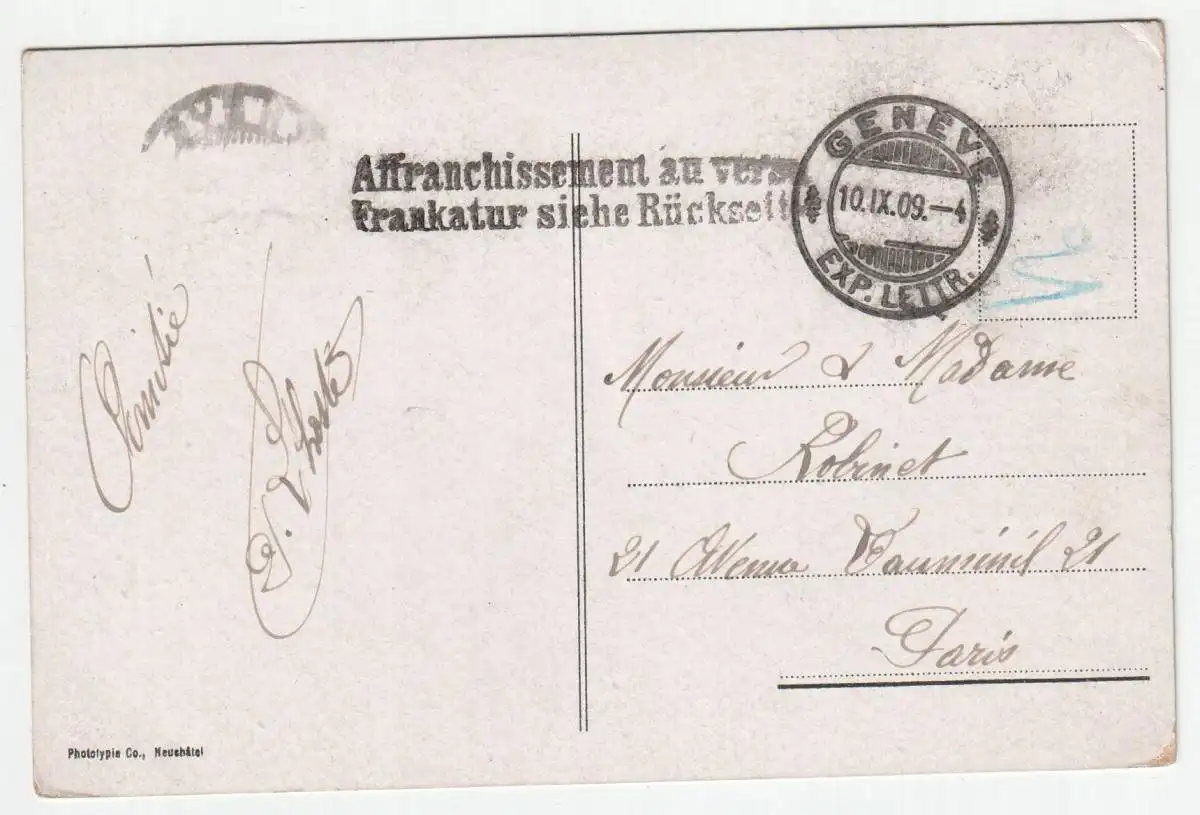 Affranchissement au verso
Frankatur siehe Rückseite
GENÈVE
10.IX.09.–4
EXP. LETTR.
Amitié
Monsieur & Madame
Robinet
21 Avenue Daumesnil 21
Paris
Phototypie Co., Neuchâtel